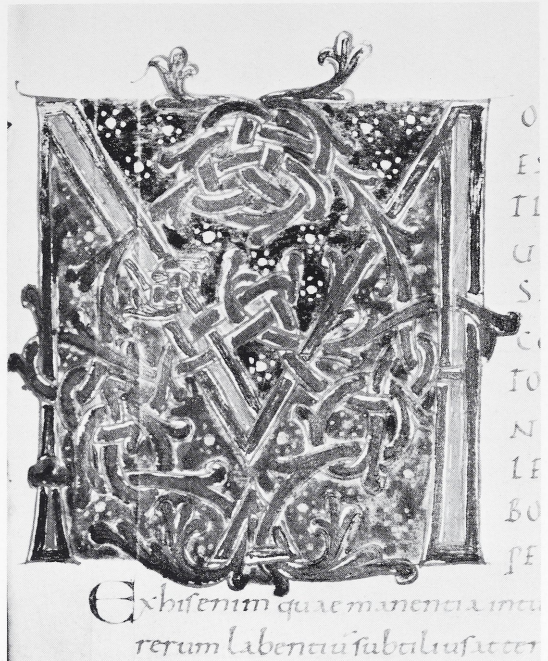 M
O
ES
TI
U
S
CO
TO
N
LE
BO
PE
Exhisenim quae manentia intu
rerum labentiū subtiliusatter